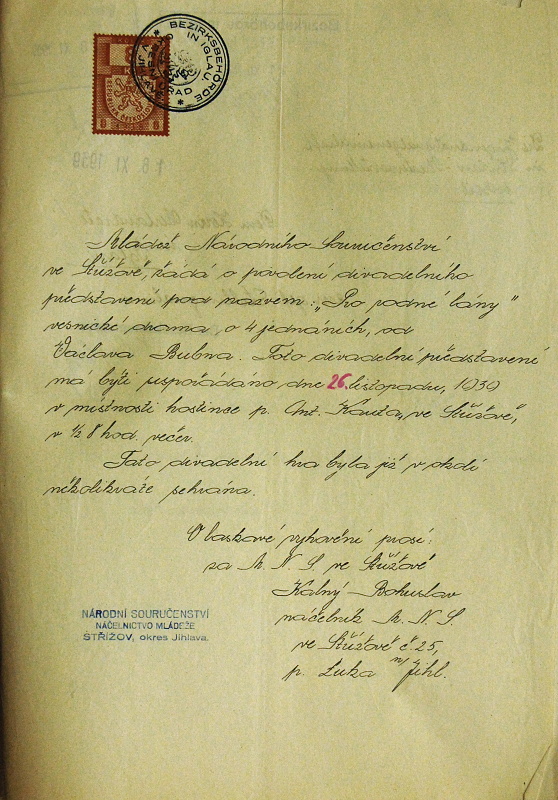 BEZIRKSBEHÖRDE
IN IGLAU
8 8
18. XI. 1939
Mládež Národního Souručenství
ve Střížově, žádá o povolení divadelního
představení pod názvem: „Pro rodné lány"
vesnické drama, o 4 jednáních, od
Václava Bubna. Toto divadelní představení
má býti uspořádáno dne 26. listopadu, 1939
v místnosti hostince p. Ant. Kauta, ve Střížově,
v ½ 8 hod. večer.
Tato divadelní hra byla již v okolí
několikráte sehrána.
O laskavé vyhovění prosí:
za M. N. S. ve Střížově
Kalný Bohuslav
náčelník M. N. S.
ve Střížově č. 25,
p. Luka n/ Jihl.
NÁRODNÍ SOURUČENSTVÍ
NÁČELNICTVO MLÁDEŽE
STŘÍŽOV, okres Jihlava.